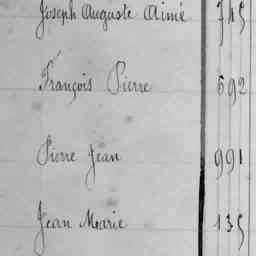 Joseph Auguste Aimé 745
François Pierre 692
Pierre Jean 991
Jean Marie 135